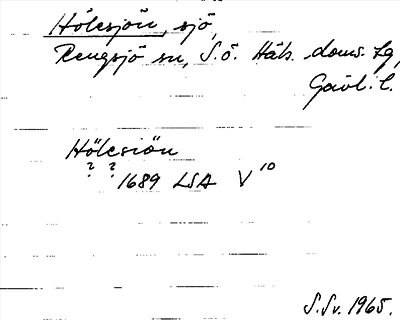 Hölesjön, sjö,
Rengsjö sn, S.ö. Häls. doms. lg,
Gävl. l.
Hölesiön
? ?
1689 LSA V¹⁰
S.Sv. 1965.